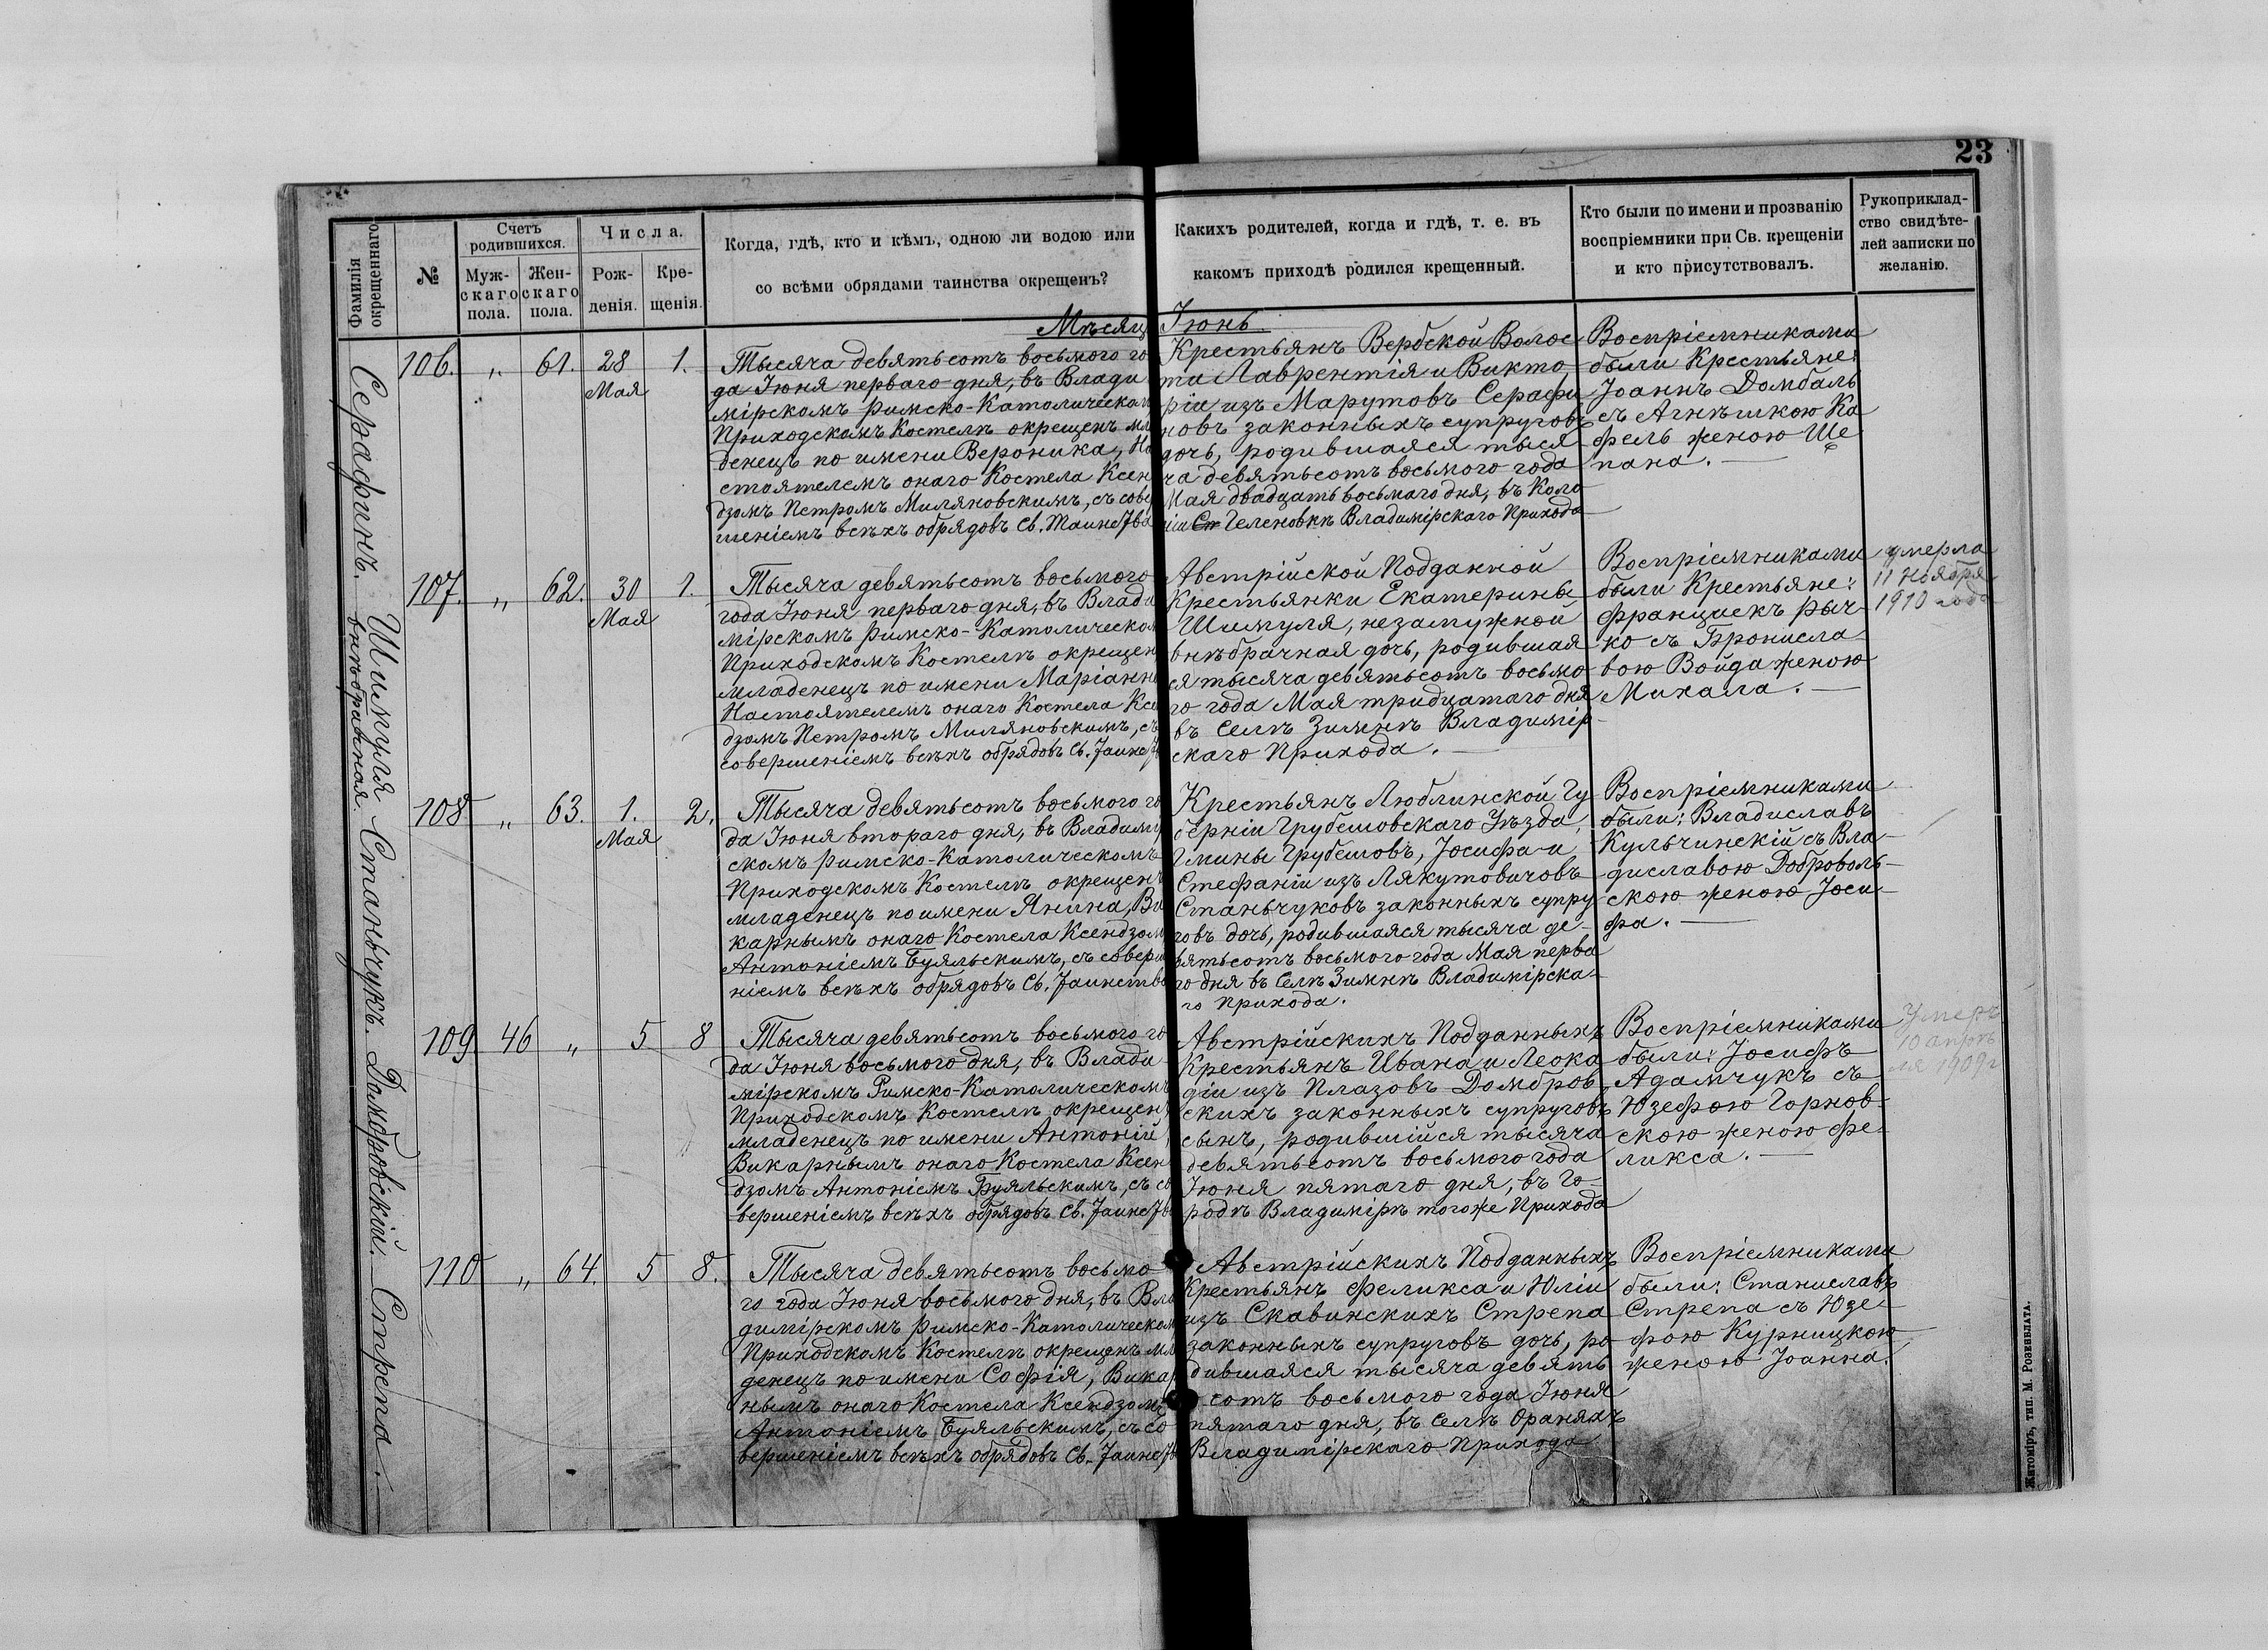 23
Фамилія окрещеннаго
№
Счетъ родившихся.
Муж-
скаго
пола.
Жен-
скаго
пола.
Числа.
Рож-
денія.
Кре-
щенія.
Когда, гдѣ, кто и кѣмъ, одною ли водою или
со всѣми обрядами таинства окрещенъ?
Какихъ родителей, когда и гдѣ, т. е. въ
какомъ приходѣ родился крещенный.
Кто были по имени и прозванію
воспріемники при Св. крещеніи
и кто присутствовалъ.
Рукоприклад-
ство свидѣте-
лей записки по
желанію.
Мѣсяц Іюнь
Серафинъ.
106. „ 61. 28 Мая 1.
Тысяча девятьсотъ восьмого го
да Іюня перваго дня, въ Влади
мірскомъ Римско-Католическом
Приходскомъ Костелѣ окрещенъ мла
денецъ по имени Вероника, На
стоятелемъ онаго Костела Ксен
дзомъ Петромъ Миляновскимъ, съ совер
шеніемъ всѣхъ обрядовъ Св. Таинства
Крестьянъ Вербской Волос
ти Лаврентія и Викто
ріи изъ Марутовъ Серафи
новъ законныхъ супруговъ
дочь, родившаяся тыся
ча девятьсотъ восьмого года
Мая двадцать восьмаго дня, въ Коло
ніи Геленовкѣ Владимірскаго Прихода
Воспріемниками
были Крестьяне:
Іоаннъ Домбаль
съ Агнѣшкою Ка
фель женою Ще
пана.
Шимуля
внѣбрачная.
107. „ 62. 30 Мая 1.
Тысяча девятьсотъ восьмого
года Іюня перваго дня, въ Влади
мірскомъ Римско-Католическом
Приходскомъ Костелѣ окрещен
младенецъ по имени Маріанна
Настоятелемъ онаго Костела Ксе
дзомъ Петромъ Миляновскимъ, съ
совершеніемъ всѣхъ обрядовъ Св. Таинст
Австрійской Подданной
Крестьянки Екатерины
Шимуля, незамужной
внѣбрачная дочь, родившая
ся тысяча девятьсотъ восьмо
го года Мая тридцатаго дня
въ Селѣ Зимнѣ Владимір-
скаго Прихода.
Воспріемниками
были Крестьяне:
Францишекъ Рыч-
ко съ Бронисла-
вою Войда женою
Михала.
умерла
11 Ноября
1910 года
Станьчукъ.
108 „ 63. 1. Мая 2.
Тысяча девятьсотъ восьмого го
да Іюня втораго дня, въ Владимір
скомъ Римско-Католическомъ
Приходскомъ Костелѣ окрещенъ
младенецъ по имени Янина, Ви
карнымъ онаго Костела Ксендзомъ
Антоніемъ Буяльскимъ, съ соверше
ніемъ всѣхъ обрядовъ Св. Таинства
Крестьянъ Люблинской Гу
берніи Грубешовскаго Уѣзда,
Гмины Грубешовъ, Іосифа и
Стефаніи изъ Лякутовичовъ
Станьчуковъ законныхъ супру
говъ дочь, родившаяся тысяча де-
вятьсотъ восьмого года Мая перва
го дня въ Селѣ Зимнѣ Владимірска-
го Прихода.
Воспріемниками
были: Владиславъ
Кульчинскій съ Вла-
диславою Доброволь-
скою женою Іоси-
фа.
Домбровскій.
109 46 „ 5 8
Тысяча девятьсотъ восьмого го
да Іюня восьмого дня, въ Влади-
мірскомъ Римско-Католическомъ
Приходскомъ Костелѣ окрещенъ
младенецъ по имени Антоній,
Викарнымъ онаго Костела Ксен
дзомъ Антоніемъ Буяльскимъ, съ со
вершеніемъ всѣхъ обрядовъ Св. Таинства
Австрійскихъ Подданныхъ
Крестьянъ Ивана и Леока
діи изъ Плазовъ Домбров
скихъ законныхъ супруговъ
сынъ, родившійся тысяча
девятьсотъ восьмого года
Іюня пятаго дня, въ Го-
родѣ Владимірѣ того же Прихода
Воспріемниками
были: Іосифъ
Адамчукъ съ
Юзефою Горнов-
скою женою Фе-
ликса.
Умеръ
10 апрѣ
ля 1909 г
Стрепа.
110 „ 64. 5 8.
Тысяча девятьсотъ восьмо
го года Іюня восьмого дня, въ Вла
димірскомъ Римско-Католическом
Приходскомъ Костелѣ окрещенъ мла
денецъ по имени Софія, Вика
нымъ онаго Костела Ксендзомъ
Антоніемъ Буяльскимъ, съ со
вершеніемъ всѣхъ обрядовъ Св. Таинства
Австрійскихъ Подданныхъ
Крестьянъ Феликса и Юліи
изъ Скавинскихъ Стрепа
законныхъ супруговъ дочь, ро
дившаяся тысяча девять
сотъ восьмого года Іюня
пятаго дня, въ Селѣ Ораняхъ
Владимірскаго Прихода
Воспріемниками
были: Станиславъ
Стрепа съ Юзе-
фою Курницкою
женою Іоанна.
Житоміръ, тип. М. Розенблата.